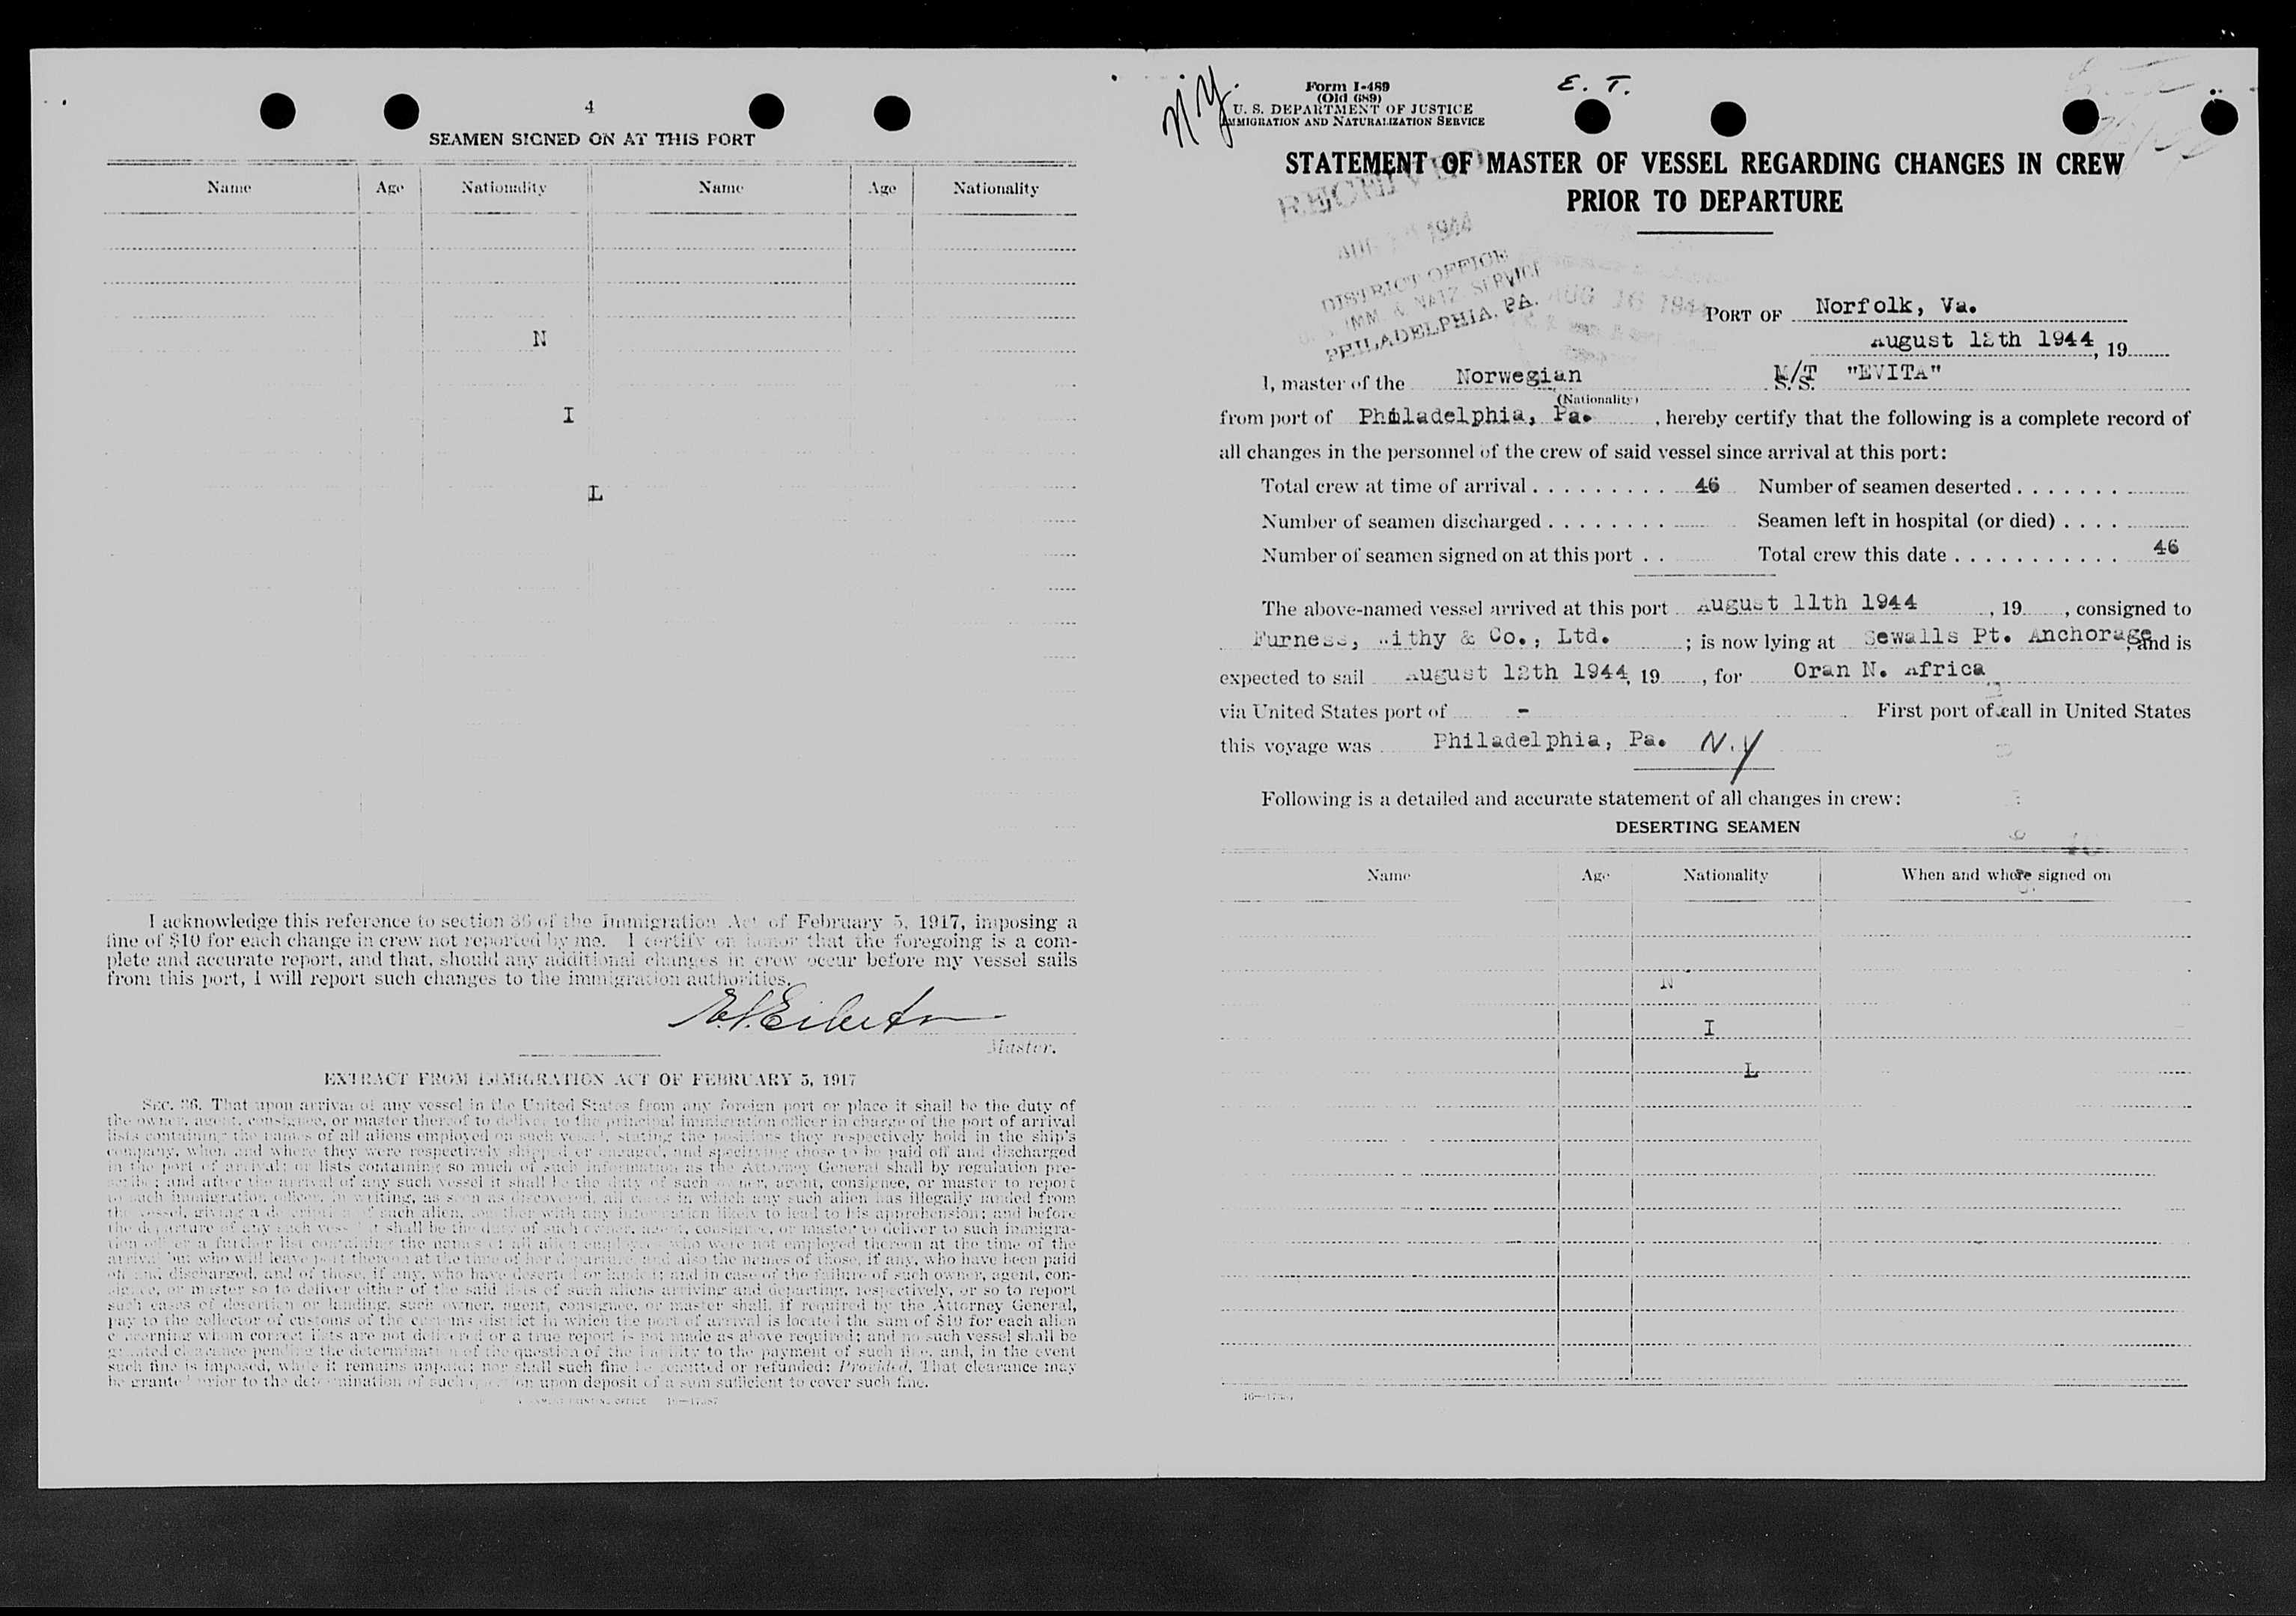 4
SEAMEN SIGNED ON AT THIS PORT
Name Age Nationality Name Age Nationality
N
I
L
I acknowledge this reference to section 36 of the Immigration Act of February 5, 1917, imposing a
fine of $10 for each change in crew not reported by me. I certify on honor that the foregoing is a com-
plete and accurate report, and that, should any additional changes in crew occur before my vessel sails
from this port, I will report such changes to the immigration authorities.
Master.
EXTRACT FROM IMMIGRATION ACT OF FEBRUARY 5, 1917
SEC. 36. That upon arrival of any vessel in the United States from any foreign port or place it shall be the duty of
the owner, agent, consignee, or master thereof to deliver to the principal immigration officer in charge of the port of arrival
lists containing the names of all aliens employed on such vessel, stating the positions they respectively hold in the ship's
company, when and where they were respectively shipped or engaged, and specifying those to be paid off and discharged
in the port of arrival; or lists containing so much of such information as the Attorney General shall by regulation pre-
scribe; and after the arrival of any such vessel it shall be the duty of such owner, agent, consignee, or master to report
to such immigration officer, in writing, as soon as discovered, all cases in which any such alien has illegally landed from
the vessel, giving a description of such alien, together with any information likely to lead to his apprehension; and before
the departure of any such vessel it shall be the duty of such owner, agent, consignee, or master to deliver to such immigra-
tion officer a further list containing the names of all alien employees who were not employed thereon at the time of the
arrival but who will leave port thereon at the time of her departure, and also the names of those, if any, who have been paid
off and discharged, and of those, if any, who have deserted or landed; and in case of the failure of such owner, agent, con-
signee, or master so to deliver either of the said lists of such aliens arriving and departing, respectively, or so to report
such cases of desertion or landing, such owner, agent, consignee, or master shall, if required by the Attorney General,
pay to the collector of customs of the customs district in which the port of arrival is located the sum of $10 for each alien
concerning whom correct lists are not delivered or a true report is not made as above required; and no such vessel shall be
granted clearance pending the determination of the question of the liability to the payment of such fine, and, in the event
such fine is imposed, while it remains unpaid; nor shall such fine be remitted or refunded: Provided, That clearance may
be granted prior to the determination of such question upon deposit of a sum sufficient to cover such fine.
N.Y.
E. T.
Form I-489
(Old 689)
U. S. DEPARTMENT OF JUSTICE
IMMIGRATION AND NATURALIZATION SERVICE
STATEMENT OF MASTER OF VESSEL REGARDING CHANGES IN CREW
PRIOR TO DEPARTURE
RECEIVED
AUG 1944
DISTRICT OFFICE
IMM. & NATZ. SERVICE
PHILADELPHIA, PA.
AUG 16 1944
PORT OF Norfolk, Va.
August 12th 1944, 19
I, master of the Norwegian M/T S.S. "EVITA"
(Nationality)
from port of Philadelphia, Pa., hereby certify that the following is a complete record of
all changes in the personnel of the crew of said vessel since arrival at this port:
Total crew at time of arrival . . . . . . . . . 46 Number of seamen deserted . . . . . . . .
Number of seamen discharged . . . . . . . . Seamen left in hospital (or died) . . . .
Number of seamen signed on at this port . . Total crew this date . . . . . . . . . . . 46
The above-named vessel arrived at this port August 11th 1944, 19, consigned to
Furness, Withy & Co., Ltd.; is now lying at Sewalls Pt. Anchorage, and is
expected to sail August 12th 1944, 19, for Oran N. Africa
via United States port of - First port of call in United States
this voyage was Philadelphia, Pa. N.Y
Following is a detailed and accurate statement of all changes in crew:
DESERTING SEAMEN
Name Age Nationality When and where signed on
N
I
L